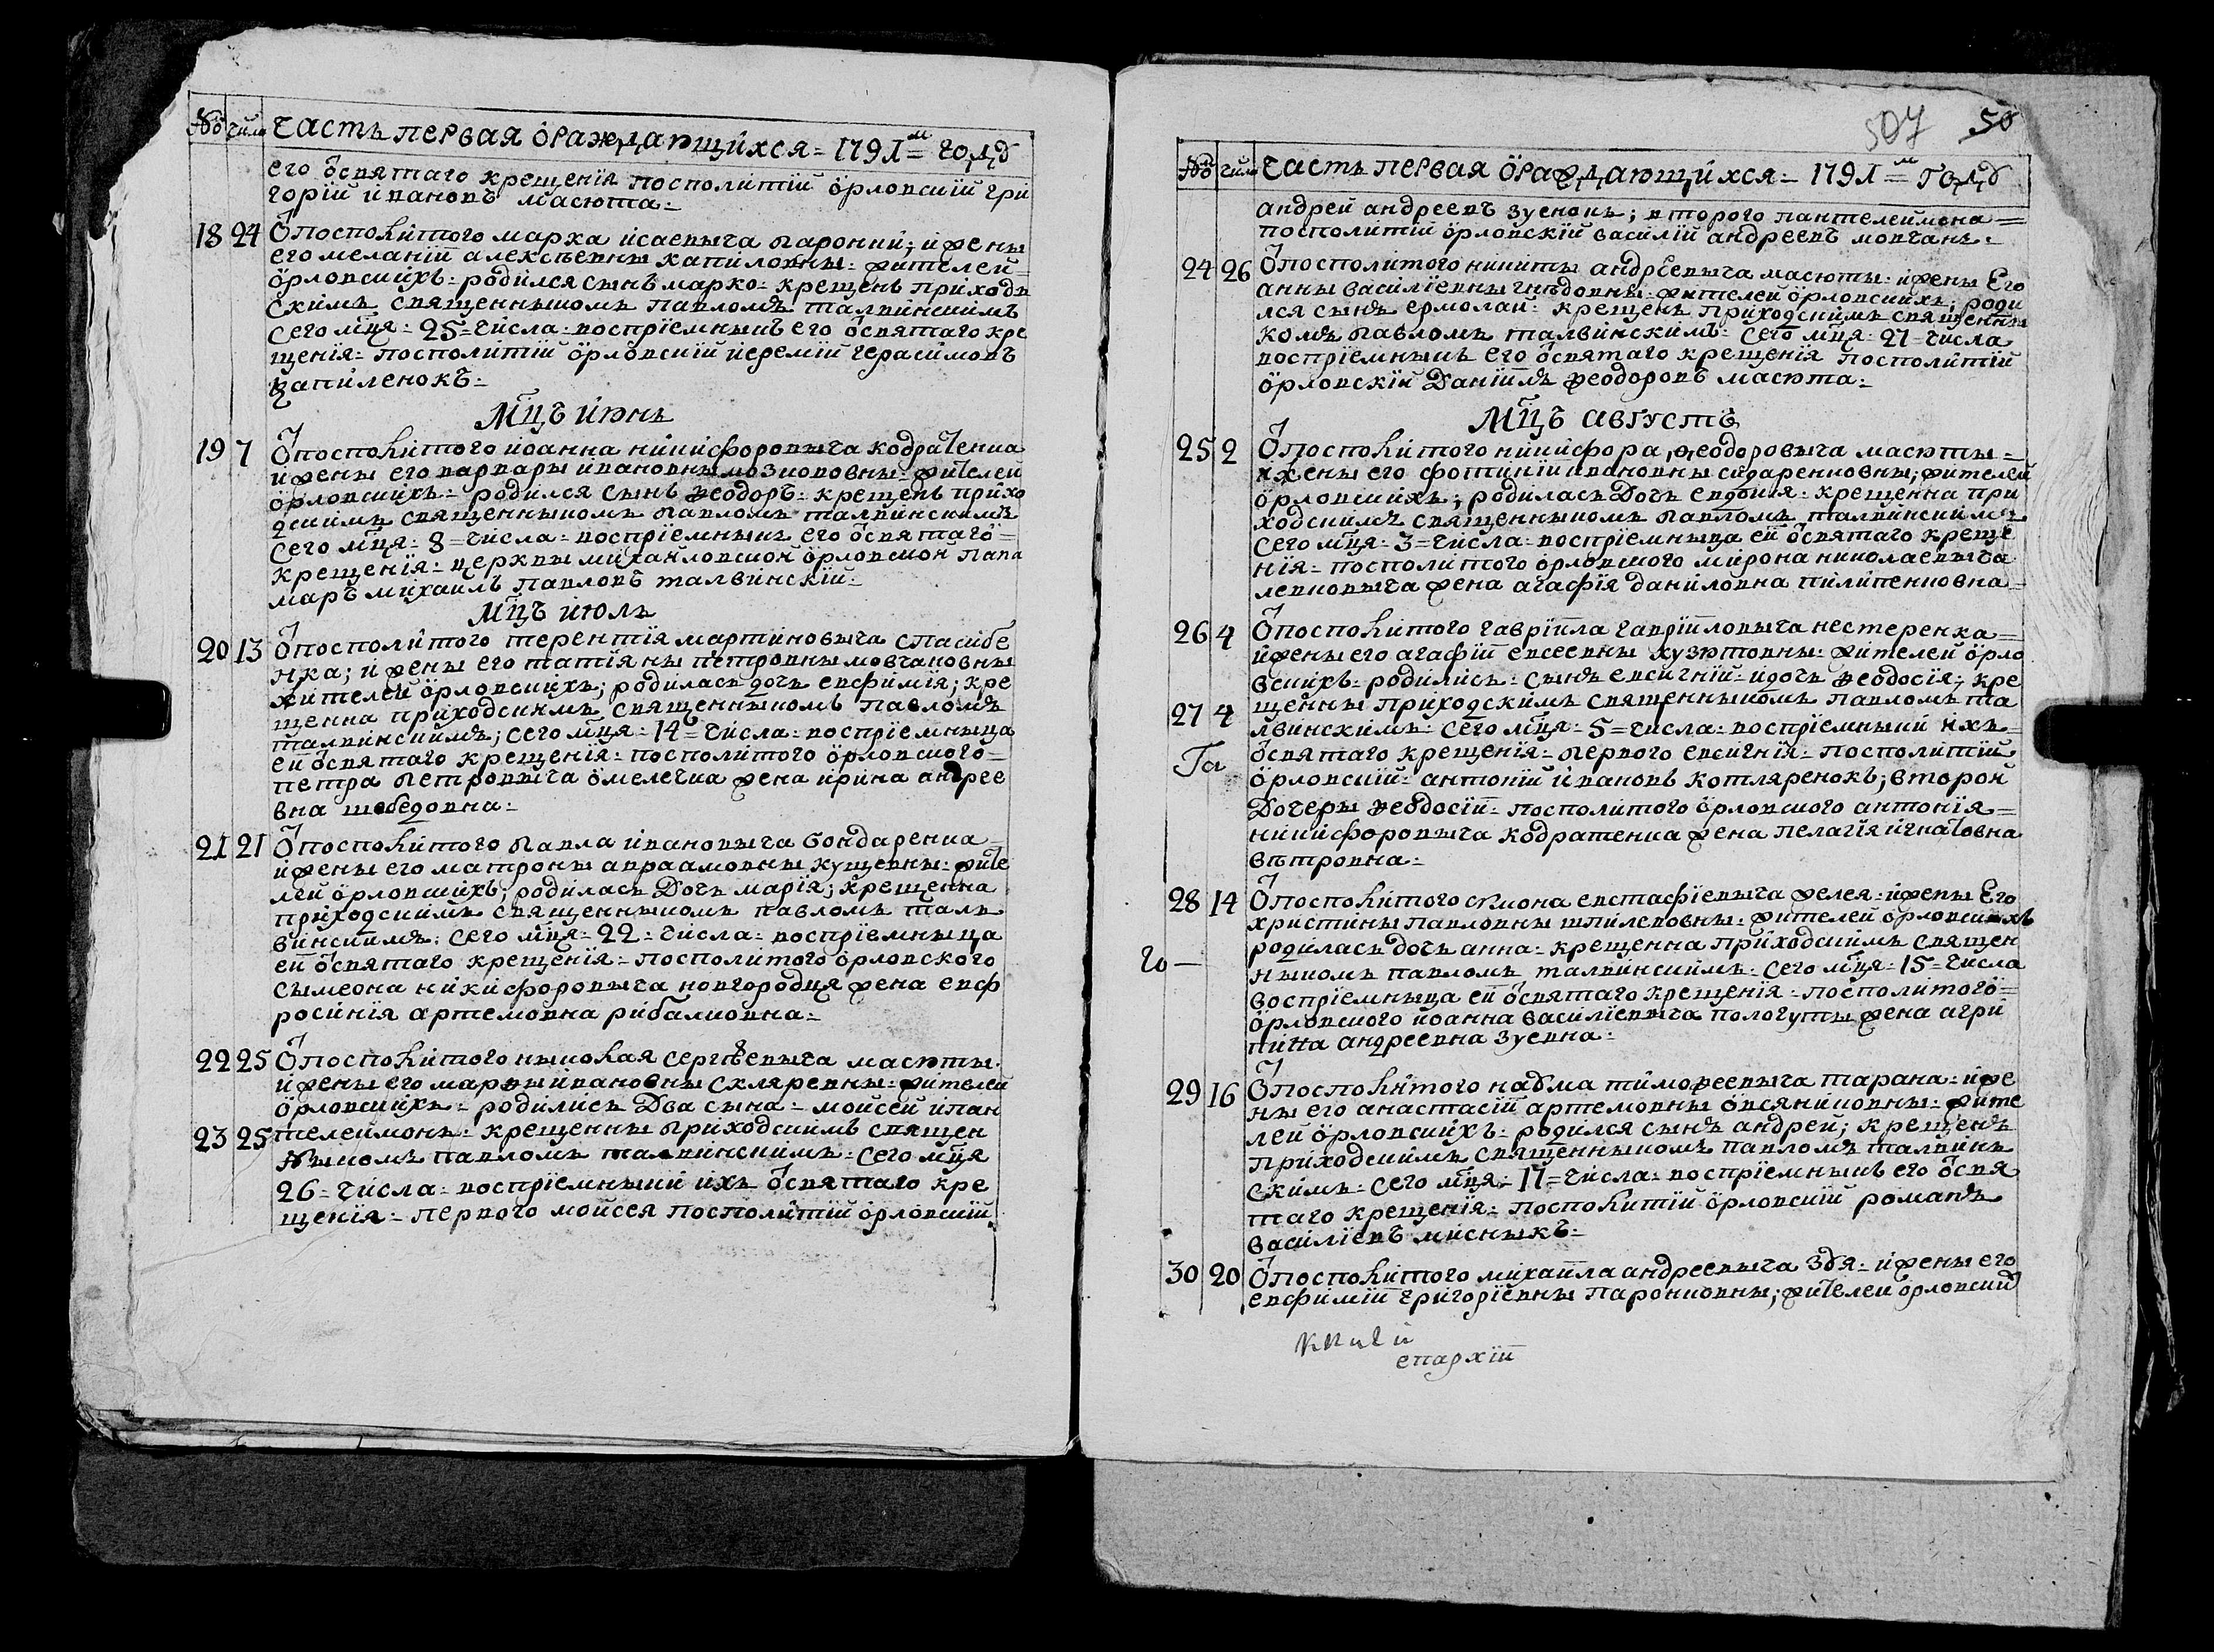 № числ Часть первая ораждающихся = 1791 м = году
его ѿсвятаго крещенїя посполитїй орловскїй гри
горїй ивановъ масюта =
18 24 Ѿ посполитого марка исаевыча паронки; и жены
его меланїй алексѣевны капиловны = жителей =
орловскихъ = родился сынъ марко = крещенъ приход
скимъ священныкомъ павломъ талвинскимъ
сего мця = 25 = числа = воспрїемныкъ его ѿсвятаго кре
щенїя = посполитїй орловскїй иеремїй герасимовъ
цапиленокъ =
Мцъ июнь
19 7 Ѿ посполитого иоанна никифоровыча кодратенка
и жены его варвары ивановны мозковны = жителей
орловскихъ = родился сынъ ѳеодоръ = крещенъ прихо
дскимъ священныкомъ павломъ талвинскимъ
сего мця = 8 = числа = воспрїемныкъ его ѿсвятаго =
крещенїя = церквы михайловской орловской пана
маръ михаилъ павловъ талвинскїй =
Мцъ июль
20 13 Ѿ посполитого терентїя мартиновыча спасибе
нка; и жены его татїяны петровны мовчановны
жителей орловскихъ; родилась дочь евфимїя; кре
щенна приходскимъ священныкомъ павломъ
талвинскимъ; сего мця = 14 = числа = воспрїемныца
ей ѿсвятаго крещенїя = посполитого орловского =
петра петровыча омелечка жена ирина андрее
вна шебедовна =
21 21 Ѿ посполитого павла ивановыча бондаренка =
и жены его матроны авраамовны кущевны = жите
лей орловскихъ; родилась дочь марїя; крещенна
приходскимъ священныкомъ павломъ таль
винскимъ; сего мця = 22 = числа = воспрїемныца
ей ѿсвятаго крещенїя = посполитого орловского
сымеона никифоровыча новгородця жена евф
росинїя артемовна рибалковна =
22 25 Ѿ посполитого ныколая сергѣевыча масюты =
и жены его марѳы ивановны скляревны = жителей
орловскихъ = родились два сына = мойсей и пан
23 25 телеймонъ = крещенны приходскимъ священ
ныкомъ павломъ талвинскимъ = сего мця
26 = числа = воспрїемныки ихъ ѿсвятаго кре
щенїя = первого мойсея посполитїй орловскїй
507 50
№ числ Часть первая ораждающихся = 1791 м = году
андрей андреевъ зуенокъ; второго пантелеймона =
посполитїй орловскїй василїй андреевъ мовчанъ =
24 26 Ѿ посполитого никиты андрїевыча масюты = и жены его
анны василїевны гнѣдовны = жителей орловскихъ; роди
лся сынъ ермолай = крещенъ приходскимъ священны
комъ павломъ талвинскимъ = сего мця = 27 = числа
воспрїемныкъ его ѿсвятаго крещенїя посполитїй
орловскїй данїилъ ѳеодоровъ масюта =
Мцъ августъ
25 2 Ѿ посполитого никифора ѳеодоровыча масюты =
и жены его фотинїй ивановны сидаренковны; жителей
орловскихъ; родилась дочь евдокия = крещенна при
ходскимъ священныкомъ павломъ талвинскимъ
сего мця = 3 = числа = воспрїемныца ей ѿсвятаго креще
нїя = посполитого орловского мирона николаевыча
левковыча жена агафїя даниловна пилипенковна =
26 4 Ѿ посполитого гаврїила гаврїиловыча нестеренка =
и жены его агафїй евсеевны кузютовны = жителей орло
вскихъ = родились = сынъ евсигнїй = и дочь ѳеодосїя; кре
27 4 щенны приходскимъ священныкомъ павломъ та
лвинскимъ = сего мця = 5 = числа = воспрїемныки ихъ =
ѿсвятаго крещенїя = первого евсигнїя = посполитїй
орловскїй = антонїй ивановъ котляренокъ; второй
дочеры ѳеодосїй = посполитого орловского антонїя =
никифоровыча кодратенка жена пелагїя игнатовна
вѣтровна =
28 14 Ѿ посполитого симона евстафїевыча желея = и жены его
христины павловны шпилевовны = жителей орловскихъ
родилась дочь анна = крещенна приходскимъ священ
ныкомъ павломъ талвинскимъ = сего мця = 15 = числа
воспрїемныца ей ѿсвятаго крещенїя = посполитого =
орловского иоанна василїевыча пологуты жена агри
пина андреевна зуевна =
29 16 Ѿ посполитого наума тимоѳеевыча тарана = и же
ны его анастасїй артемовны овсяниковны = жите
лей орловскихъ = родился сынъ андрей; крещенъ
приходскимъ священныкомъ павломъ талвинь
скимъ = сего мця = 17 = числа = воспрїемныкъ его ѿсвя
таго крещенїя = посполитїй орловскїй романъ
василїевъ мисныкъ =
30 20 Ѿ посполитого михаила андреевыча зуя = и жены его
евфимїй григорїевны паронковны; жителей орловский
епархїи